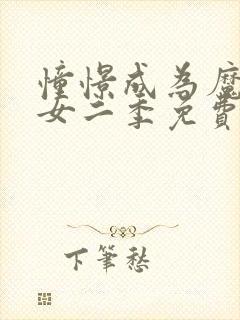 憧憬成為魔
女二季免費
下筆愁